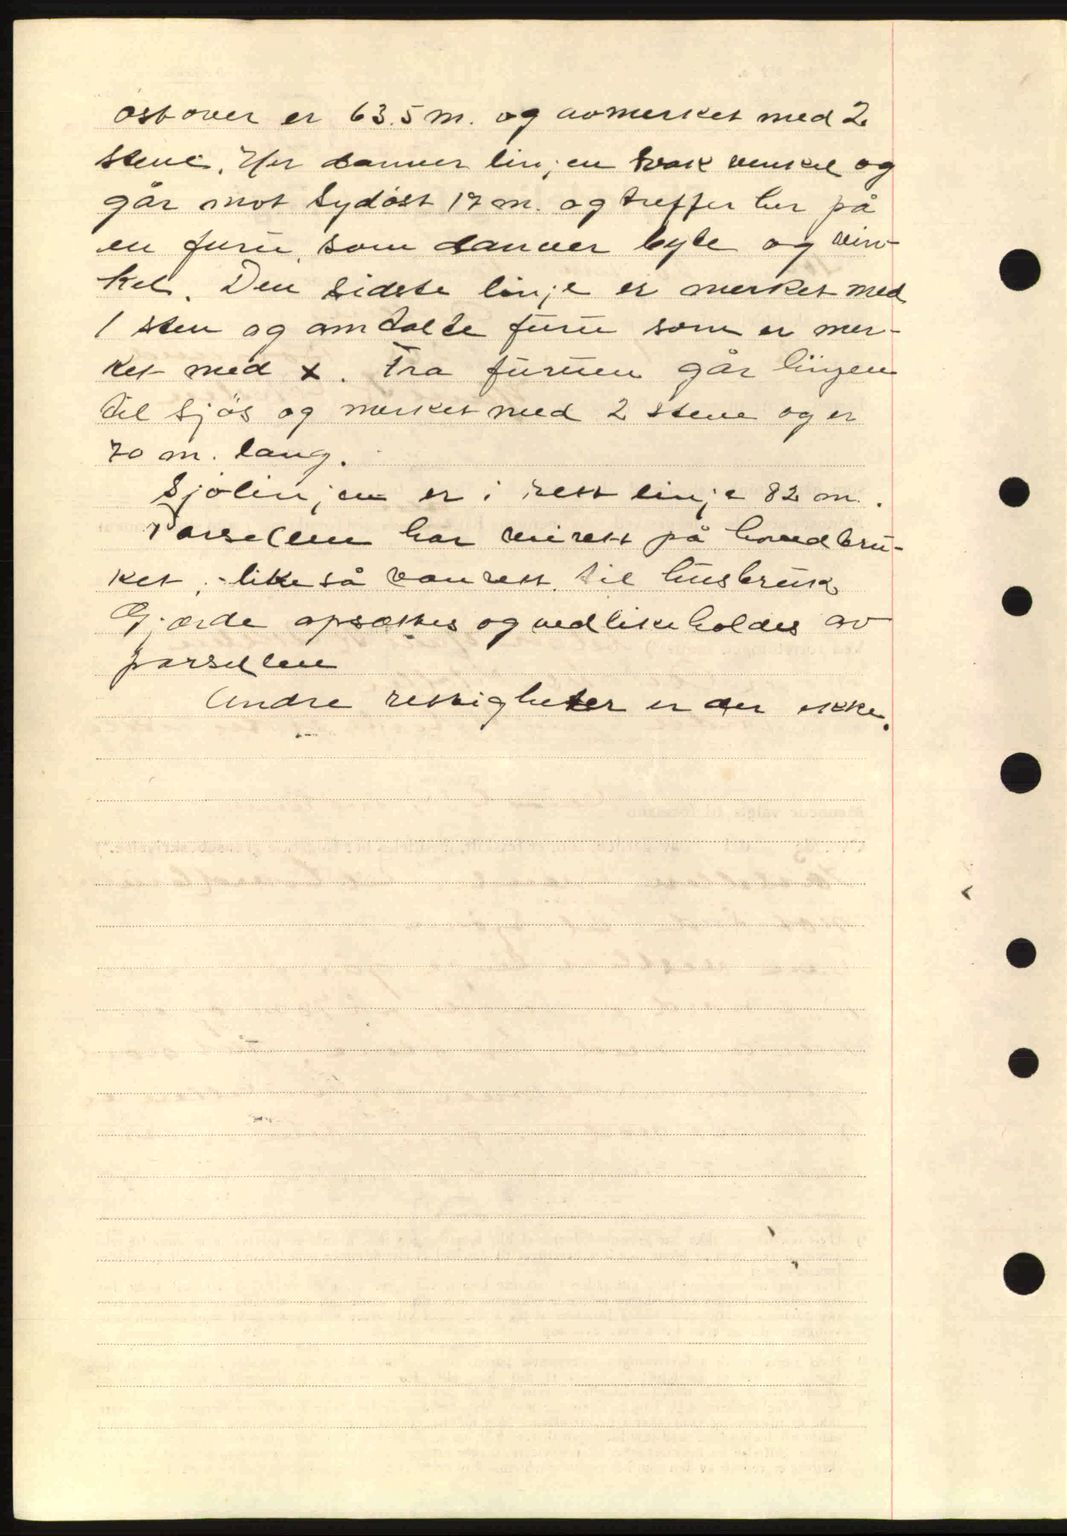 østover er 63.5 m. og avmerket med 2
stene. Her danner linjen svak vinkel og
går mot Sydøst 17 m. og treffer her på
en furu, som danner byte og vin-
kel. Den sidste linje er merket med
1 sten og omtalte furu som er mer-
ket med x. Fra furuen går linjen
til Sjøs og merket med 2 stene og er
70 m. lang.
Sjølinjen er i rett linje 82 m.
Parsellen har veirett på hovedbru-
ket, - likeså vanrett til husbruk
Gjærde opsættes og vedlikeholdes av
parsellen
Andre rettigheter er der ikke.